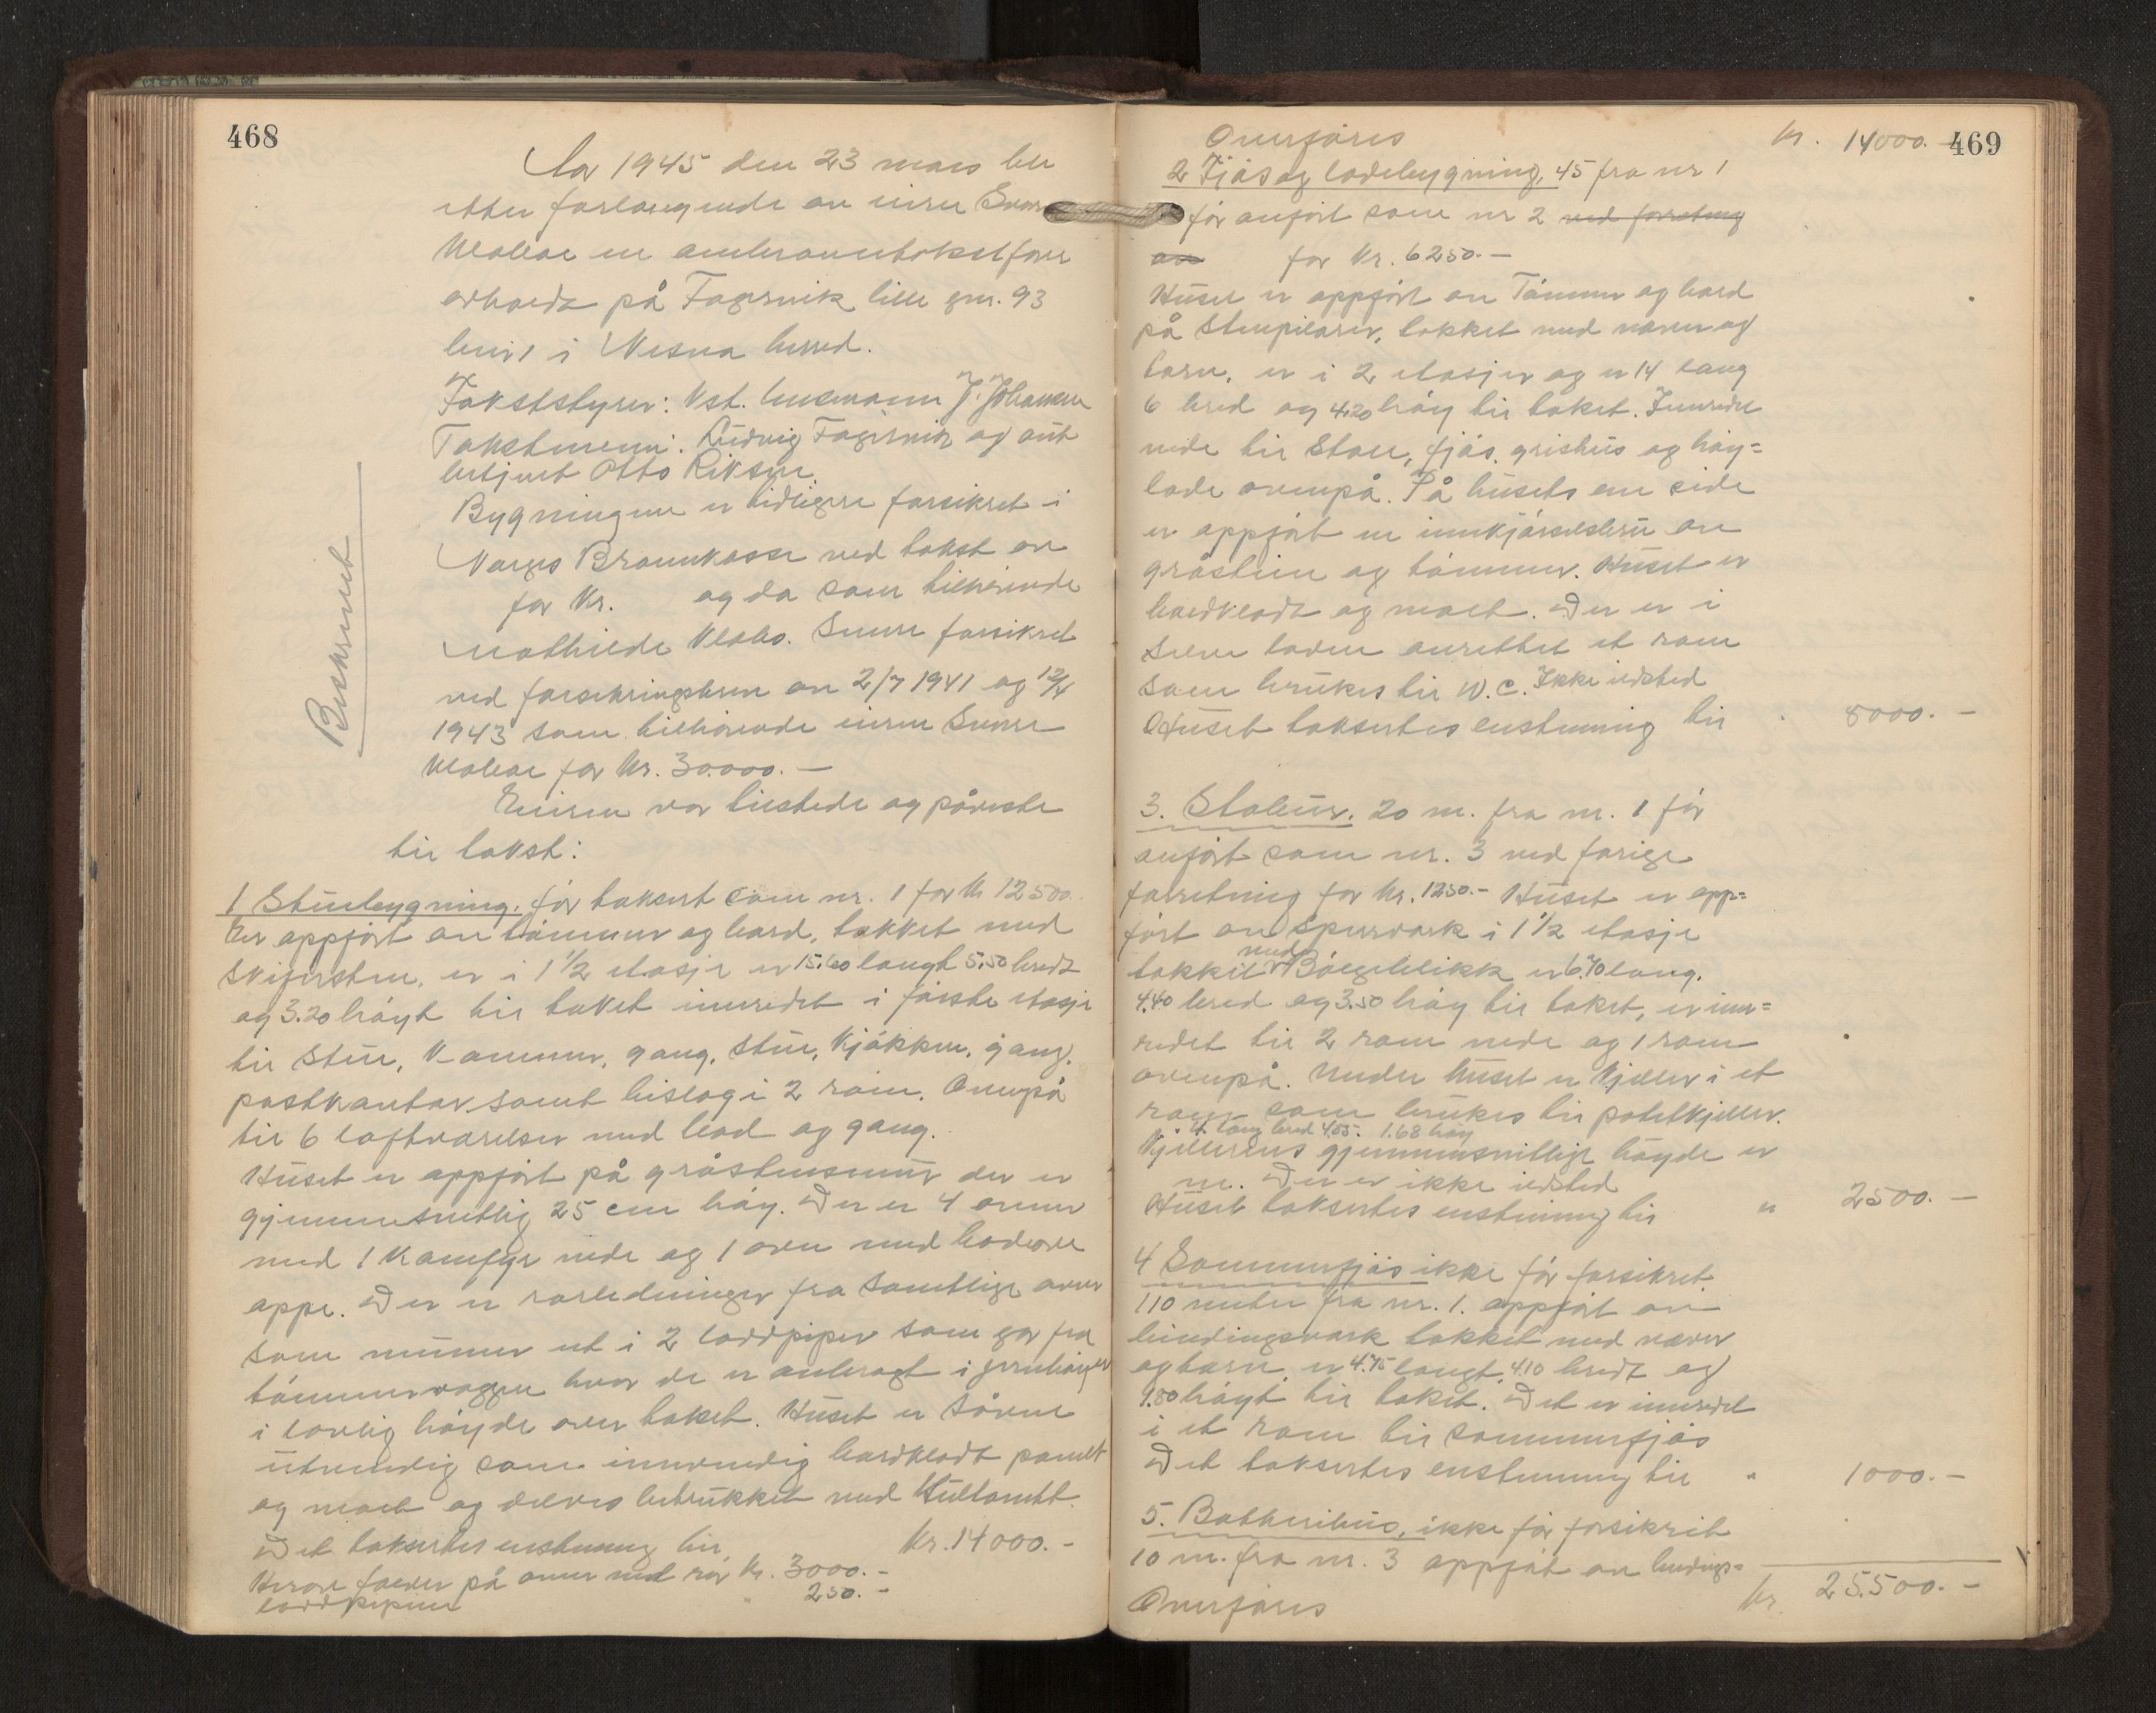 468
År 1945 den 23 mars ble
etter forlangende av eieren Sverre
Klokke en ombrannetakst fore
avholdt på Fagervik lille gnr. 93
bnr 1 i Nesna herred.
Takststyrer: Kst. lensmann J. Johansen
Takstmenn: Ludvig Fagervik og aut
betjent Otto Riksen.
Bygningene er tidligere forsikret i
Norges Brannkasse ved takst av
for Kr. og da som tilhörende
Mathilde Senere forsikret
ved forsikringsbrev av 2/7 1941 og 12/4
1943 som tilhörende eieren Sverre
for Kr. 30.000.-
Eieren var tilstede og påviste
til takst:
Beskrevet
1 Stuebygning. för taksert som nr. 1 for Kr 12500.
Er oppfört av tömmer og bord, takket med
skifersten, er i 1 1/2 etasje er 15.60 langt 5.50 bredt
og 3.20 höyt til taket innredet i förste etasje
til stue, kammer, gang, stue, kjökken, gang,
postkontor samt bislag i 2 rom. Ovenpå
til 6 loftværelser med bod og gang.
Huset er oppfört på gråstensmur der er
gjennemsnittlig 25 cm höy. Der er 4 ovner
med 1 komfyr nede og 1 ovn med
oppe. Der er rörledninger fra samtlige ovner
som munner ut i 2 loddpiper som går fra
tömmervæggen hvor de er anbragt i
i lovlig höyde over taket. Huset er såvel
utvendig som innvendig bordklædt panelt
og malt og delvis betrukket med Huntonitt.
Det takseredes enstemmig til Kr. 14000.-
Herav falder på ovner med rör Kr. 3000.-
loddpipene " 250.-
469
Overföres Kr. 14000.-
2 Fjös og ladebygning, 45 fra nr 1
för anfört som nr 2 ved forretning
av for Kr. 6250.-
Huset er oppfört av Tömmer og bord
på stenpilarer, takket med never og
torv, er i 2 etasjer og er 14 lang
6 bred og 4.20 höy til taket. Innredet
nede til stall, fjös, grishus og höy=
lade ovenpå. På husets ene side
er oppfört en innkjörselsbru av
gråsten og tömmer. Huset er
bordklædt og malt. Der er i
selve laden avrettet et rom
som brukes til W.C. Ikke ildsted
Huset taksertes enstemmig til " 8000.-
3. Stabur. 20 m. fra nr. 1 för
anfört som nr. 3 ved forige
forretning for Kr. 1250.- Huset er opp=
fört av Sperverk i 1 1/2 etasje
takket med Bölgeblikk er 6.70 lang.
4.40 bred og 3.50 höy til taket, er inn=
redet til 2 rom nede og 1 rom
ovenpå. Under huset er kjeller i et
rom som brukes til potetkjeller.
4. lang bred 4.55. 1.68 höy
Kjellerens gjennemsnitlige höyde er
m. Der er ikke ildsted
Huset taksertes enstemmig til " 2500.-
4 Sommerfjös ikke för forsikret.
110 meter fra nr. 1. oppfört av
bindingsverk takket med never
og torv, er 4.75 langt, 4.10 bredt og
1.80 höyt til taket. Det er innredet
i et rom til sommerfjös
Det taksertes enstemmig til " 1000.-
5. Bakkerihus, ikke för forsikret
10 m. fra nr. 3 oppfört av bindings=
Overföres Kr. 25.500.-